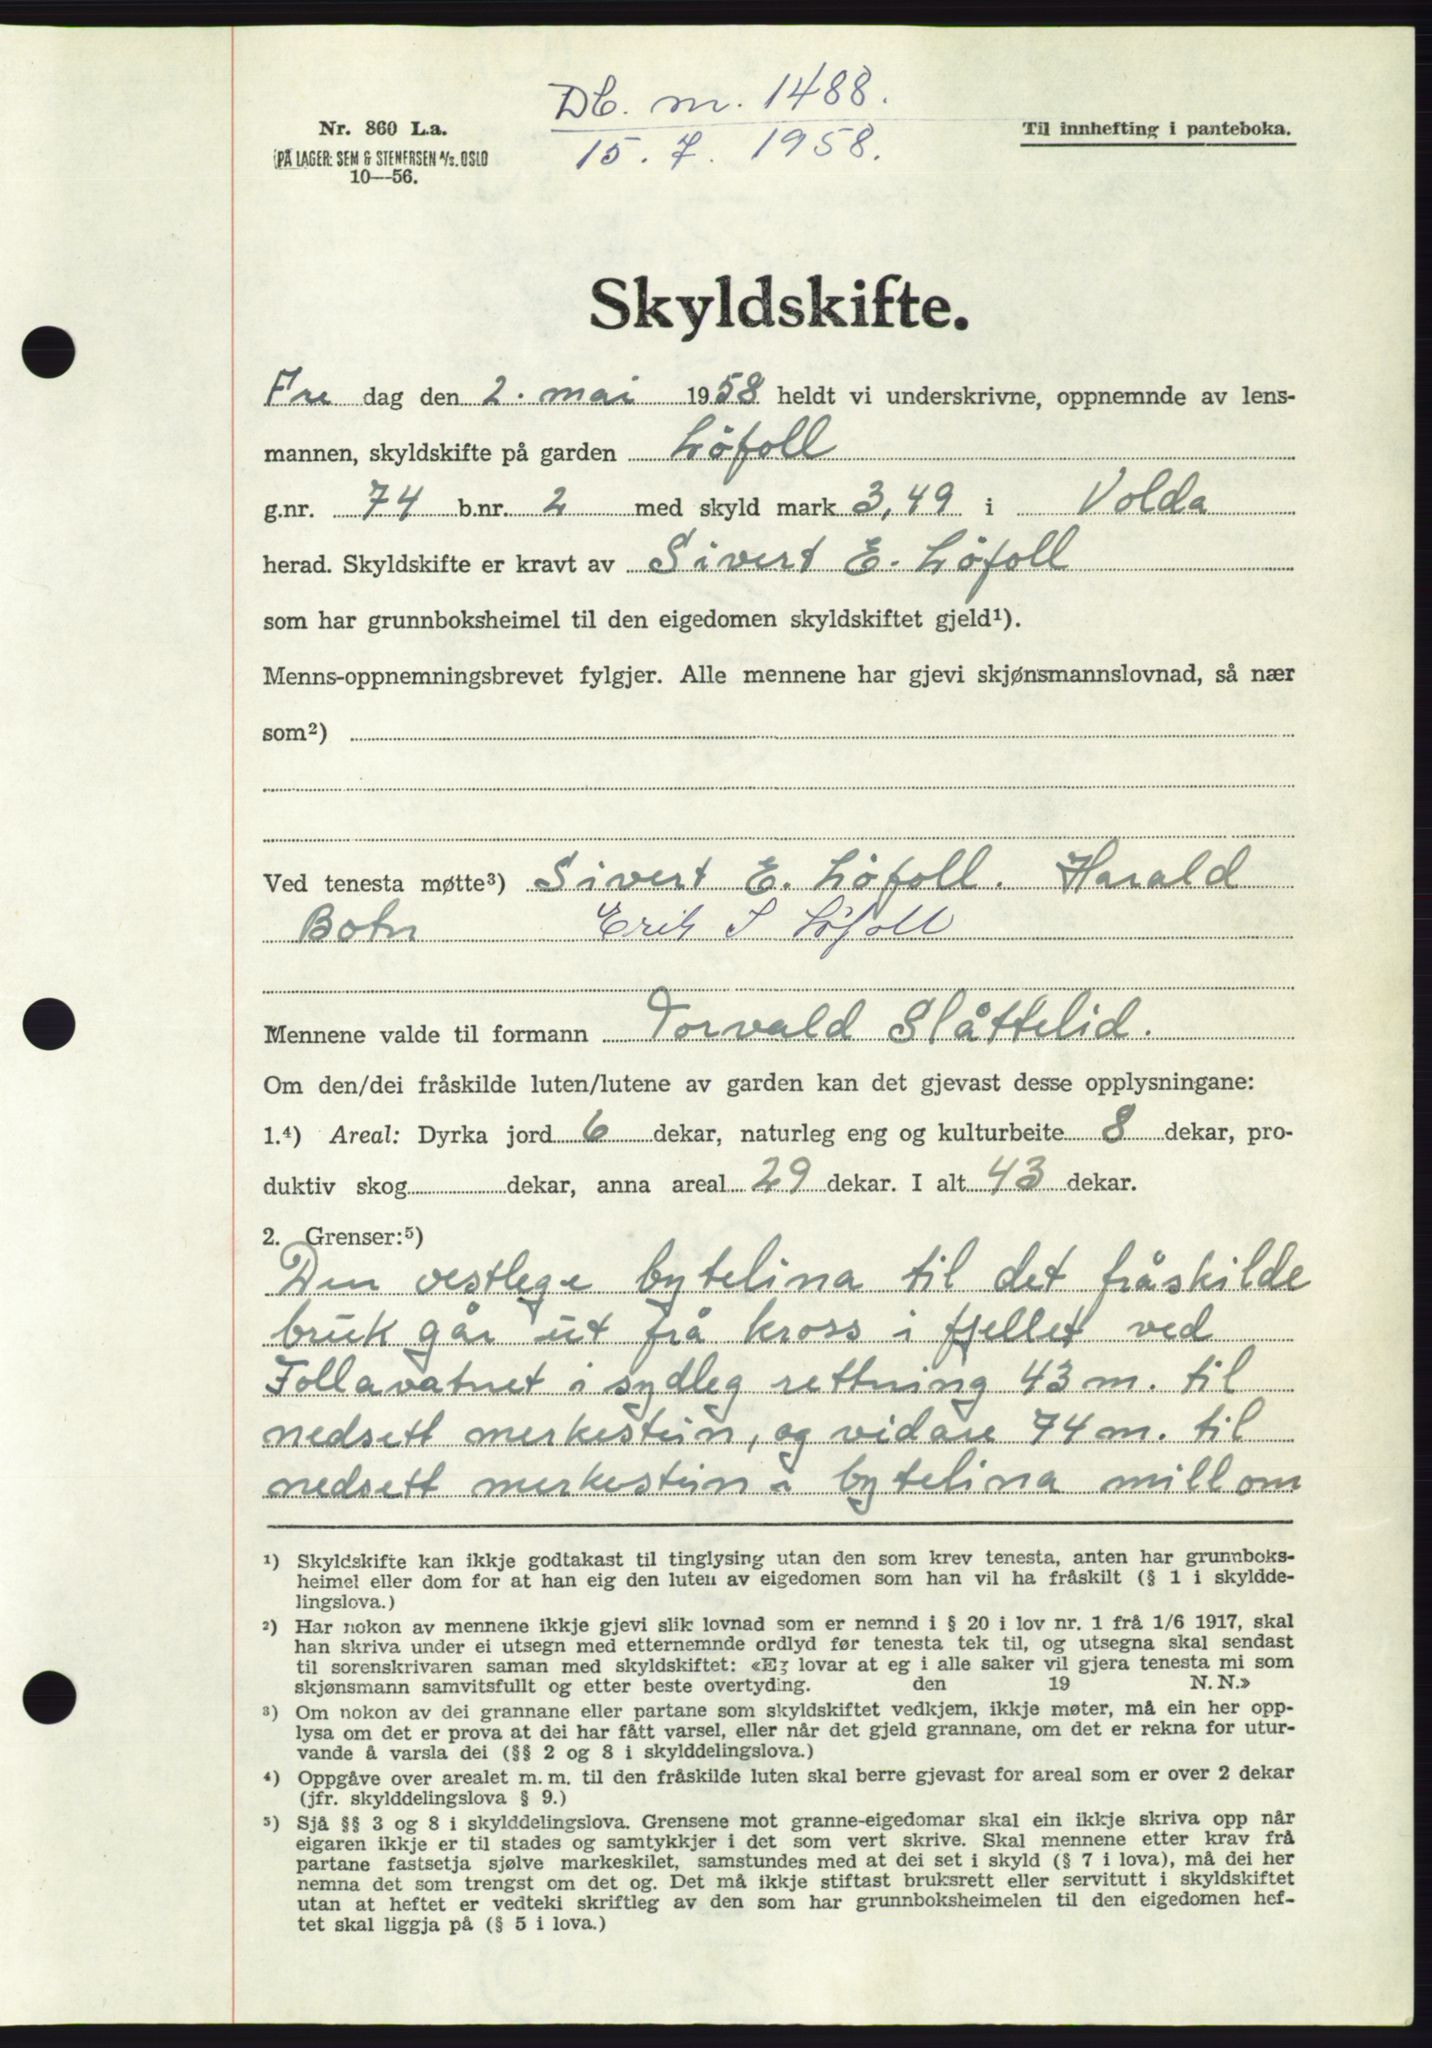 Db. nr. 1488.
15. 7. 1958.
Nr. 860 L.a.
PÅ LAGER: SEM & STENERSEN A/S. OSLO
10—56.
Til innhefting i panteboka.
Skyldskifte.
Fre dag den 2. mai 1958 heldt vi underskrivne, oppnemnde av lens-
mannen, skyldskifte på garden Löfoll
g.nr. 74 b.nr. 2 med skyld mark 3,49 i Volda
herad. Skyldskifte er kravt av Sivert E. Löfoll
som har grunnboksheimel til den eigedomen skyldskiftet gjeld¹).
Menns-oppnemningsbrevet fylgjer. Alle mennene har gjevi skjønsmannslovnad, så nær
som²)
Ved tenesta møtte³) Sivert E. Löfoll. Harald
Botn Erik S Löfoll
Mennene valde til formann Torvald Slåttelid.
Om den/dei fråskilde luten/lutene av garden kan det gjevast desse opplysningane:
1.⁴) Areal: Dyrka jord 6 dekar, naturleg eng og kulturbeite 8 dekar, pro-
duktiv skog dekar, anna areal 29 dekar. I alt 43 dekar.
2. Grenser:⁵)
Den vestlege bytelina til det fråskilde
bruk går ut frå kross i fjellet ved
Follavatnet i sydleg rettning 43 m. til
nedsett merkestein, og vidare 74 m. til
nedsett merkestein i bytelina millom
¹) Skyldskifte kan ikkje godtakast til tinglysing utan den som krev tenesta, anten har grunnboks-
heimel eller dom for at han eig den luten av eigedomen som han vil ha fråskilt (§ 1 i skyldde-
lingslova.)
²) Har nokon av mennene ikkje gjevi slik lovnad som er nemnd i § 20 i lov nr. 1 frå 1/6 1917, skal
han skriva under ei utsegn med etternemnde ordlyd før tenesta tek til, og utsegna skal sendast
til sorenskrivaren saman med skyldskiftet: «Eg lovar at eg i alle saker vil gjera tenesta mi som
skjønsmann samvitsfullt og etter beste overtyding. den 19 N. N.»
³) Om nokon av dei grannane eller partane som skyldskiftet vedkjem, ikkje møter, må ein her opp-
lysa om det er prova at dei har fått varsel, eller når det gjeld grannane, om det er rekna for utur-
vande å varsla dei (§§ 2 og 8 i skylddelingslova.)
⁴) Oppgåve over arealet m. m. til den fråskilde luten skal berre gjevast for areal som er over 2 dekar
(jfr. skylddelingslova § 9.)
⁵) Sjå §§ 3 og 8 i skylddelingslova. Grensene mot granne-eigedomar skal ein ikkje skriva opp når
eigaren ikkje er til stades og samtykkjer i det som vert skrive. Skal mennene etter krav frå
partane fastsetja sjølve markeskilet, samstundes med at dei set i skyld (§ 7 i lova), må dei her
nemna det som trengst om det og. Det må ikkje stiftast bruksrett eller servitutt i skyldskiftet
utan at heftet er vedteki skriftleg av den som har grunnboksheimelen til den eigedomen hef-
tet skal liggja på (§ 5 i lova.)